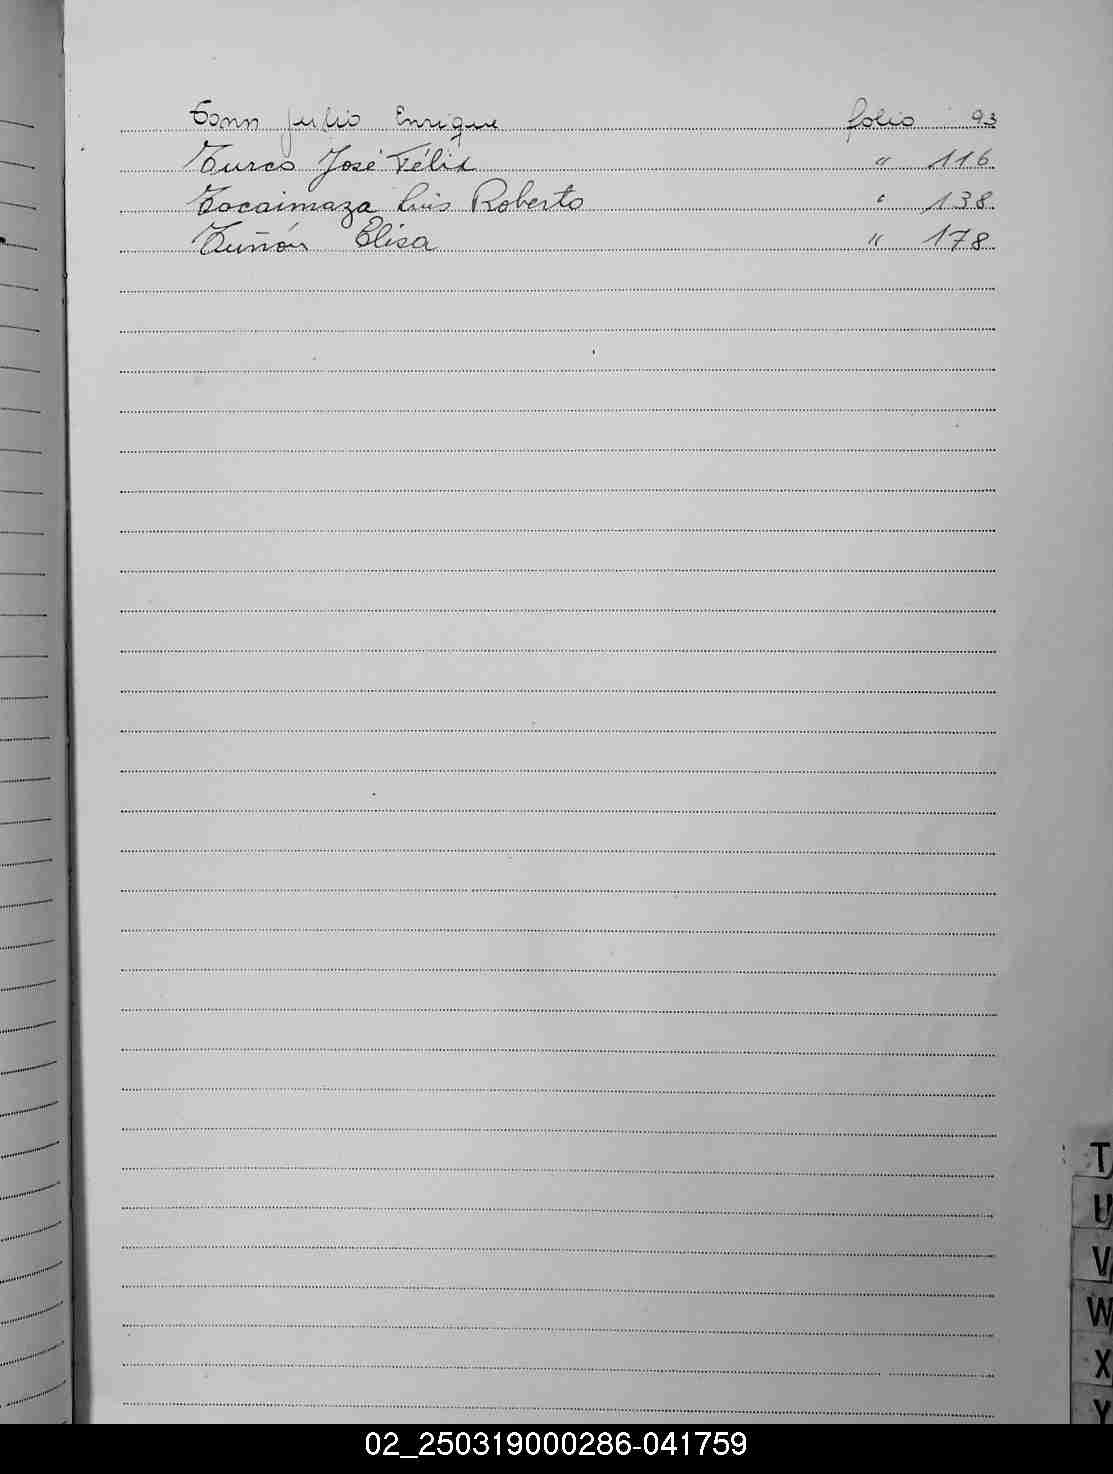 Tonn Julio Enrique folio 93
Turco José Félix " 116
Tocaimaza Luis Roberto " 138
Tuñón Elisa " 178
T
U
V
W
X
Y
02_250319000286-041759